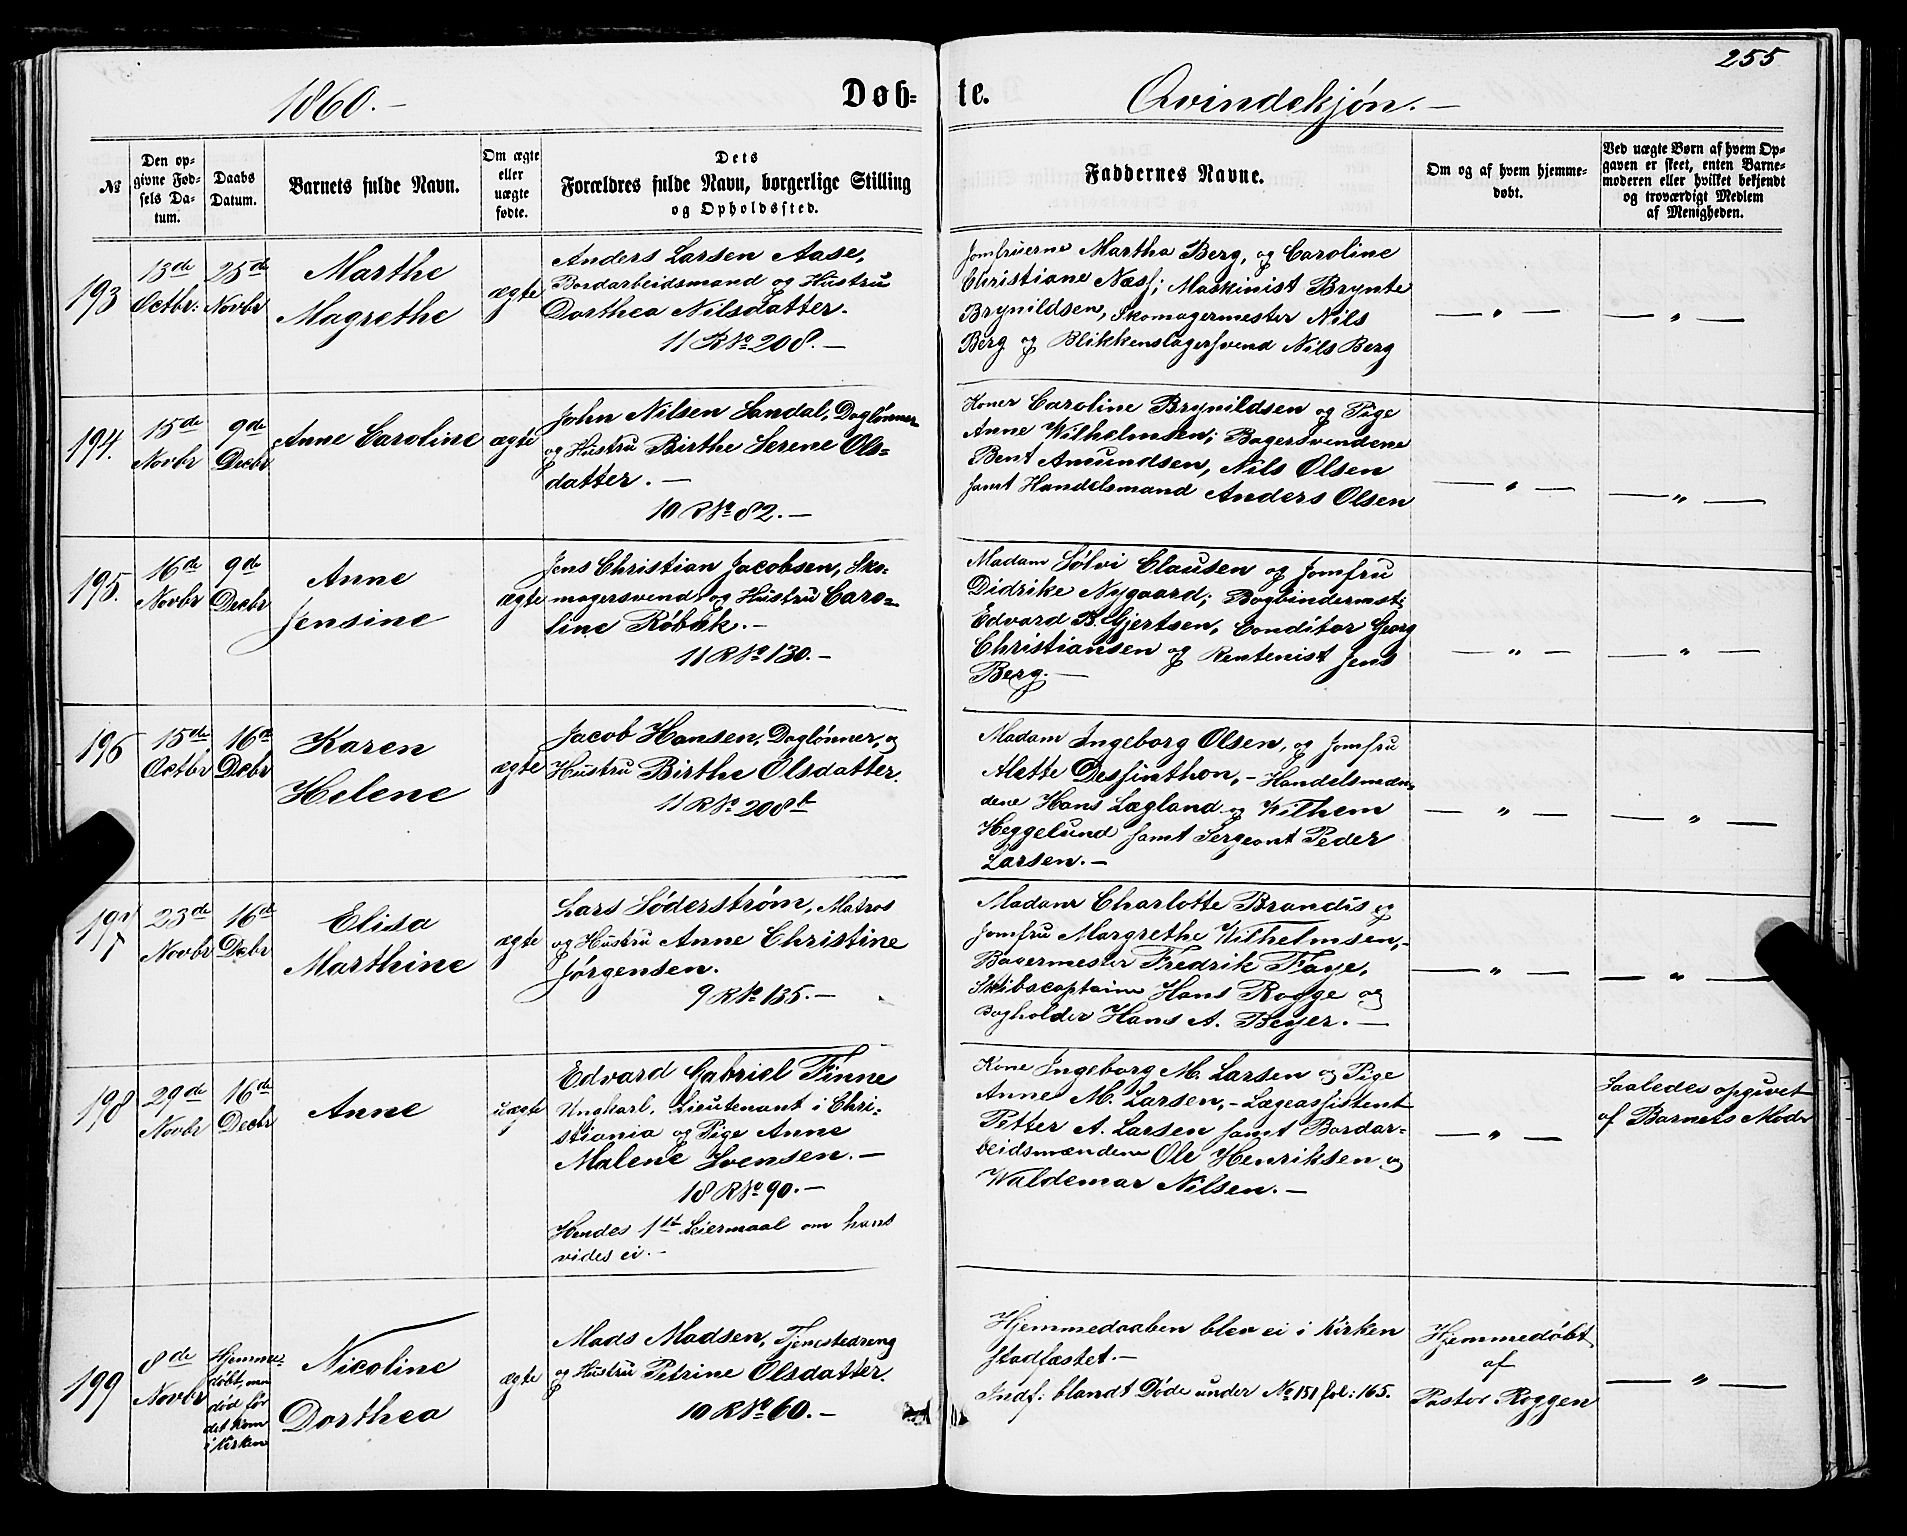 255
1860.—
Døb-
te.
Qvindekjøn.—
№
Den op-
givne Fød-
sels Da-
tum.
Daabs
Datum.
Barnets fulde Navn.
Om ægte
eller
uægte
fødte.
Dets
Forældres fulde Navn, borgerlige Stilling
og Opholdssted.
Faddernes Navne.
Om og af hvem hjemme-
døbt.
Ved uægte Børn af hvem Op-
gaven er skeet, enten Barne-
moderen eller hvilket bekjendt
og troværdigt Medlem
af Menigheden.
193
13de
Octbr:
25de
Novbr
Marthe
Magrethe
ægte
Anders Larsen Aase,
Bordarbeidsmand og Hustru
Dorthea Nilsdatter.
11 R№ 208.—
Jomfruerne Martha Berg, og Caroline
Christiane Næss; Maskinist Brynte
Brynildsen, Skomagermester Nils
Berg og Blikkenslagersvend Nils Berg
— " —
— " —
194.
15de
Novbr
9de
Decbr
Anne Caroline
ægte
John Nilsen Sandal, Daglønner
og Hustru Birthe Serene Ols-
datter.—
10 R№ 82.—
Koner Caroline Brynildsen og Pige
Anne Wilhelmsen; Bagersvendene
Bent Amundsen, Nils Olsen
samt Handelsmand Anders Olsen
— " —
— " —
195.
16de
Novbr
9de
Decbr
Anne
Jensine
ægte
Jens Christian Jacobsen, Sko-
magersvend, og Hustru Caro-
line Røbak.—
11 R№ 130.—
Madam Sølvi Clausen og Jomfru
Didrike Nygaard; Bogbindermst:
Edvard B. Gjertsen, Conditor Georg
Christiansen og Rentenist Jens
Berg.—
— " —
— " —
196
15de
Octbr
16de
Decbr
Karen
Helene
ægte
Jacob Hansen, Daglønner, og
Hustru Birthe Olsdatter.
11 R№ 208b
Madam Ingeborg Olsen, og Jomfru
Alette Dessinthon,— Handelsmæn-
dene Hans Lægland og Wilhem
Heggelund samt Sergeant Peder
Larsen.—
— " —
— " —
197
23de
Novbr
16de
Decbr
Elisa
Marthine
ægte
Lars Søderstrøm, Matros
og Hustru Anne Christine
Jørgensen.
9 R№ 135.—
Madam Charlotte Brandis og
Jomfru Margrethe Wilhelmsen,—
Bagermester Fredrik Faye,
Skibscaptaine Hans Rogge og
Bogholder Hans A. Beyer.—
— " —
— " —
198
29de
Novbr
16de
Decbr
Anne
uægte
Edvard Gabriel Finne
Ungkarl, Lieutenant i Chri-
stiania og Pige Anne
Malene Svensen.—
18 R№ 90.—
Hendes 1st Leiermaal om hans
vides ei.—
Kone Ingeborg M. Larsen og Pige
Anne M. Larsen,— Lægeassistent
Petter A. Larsen samt Bordar-
beidsmændene Ole Henriksen og
Waldemar Nilsen.—
— " —
Saaledes opgivet
af Barnets Moder
199
8de
Novbr
Hjemme-
døbt, men
død før
det kom
i Kirken
Nicoline
Dorthea
ægte
Mads Madsen, Tjenestedreng
og Hustru Petrine Olsdatter.
10 R№ 60.—
Hjemmedaaben blev ei i Kirken
stadfæstet.—
Indf: blandt Døde under № 151 fol: 165.
Hjemmedøbt
af
Pastor Roggen
— " —